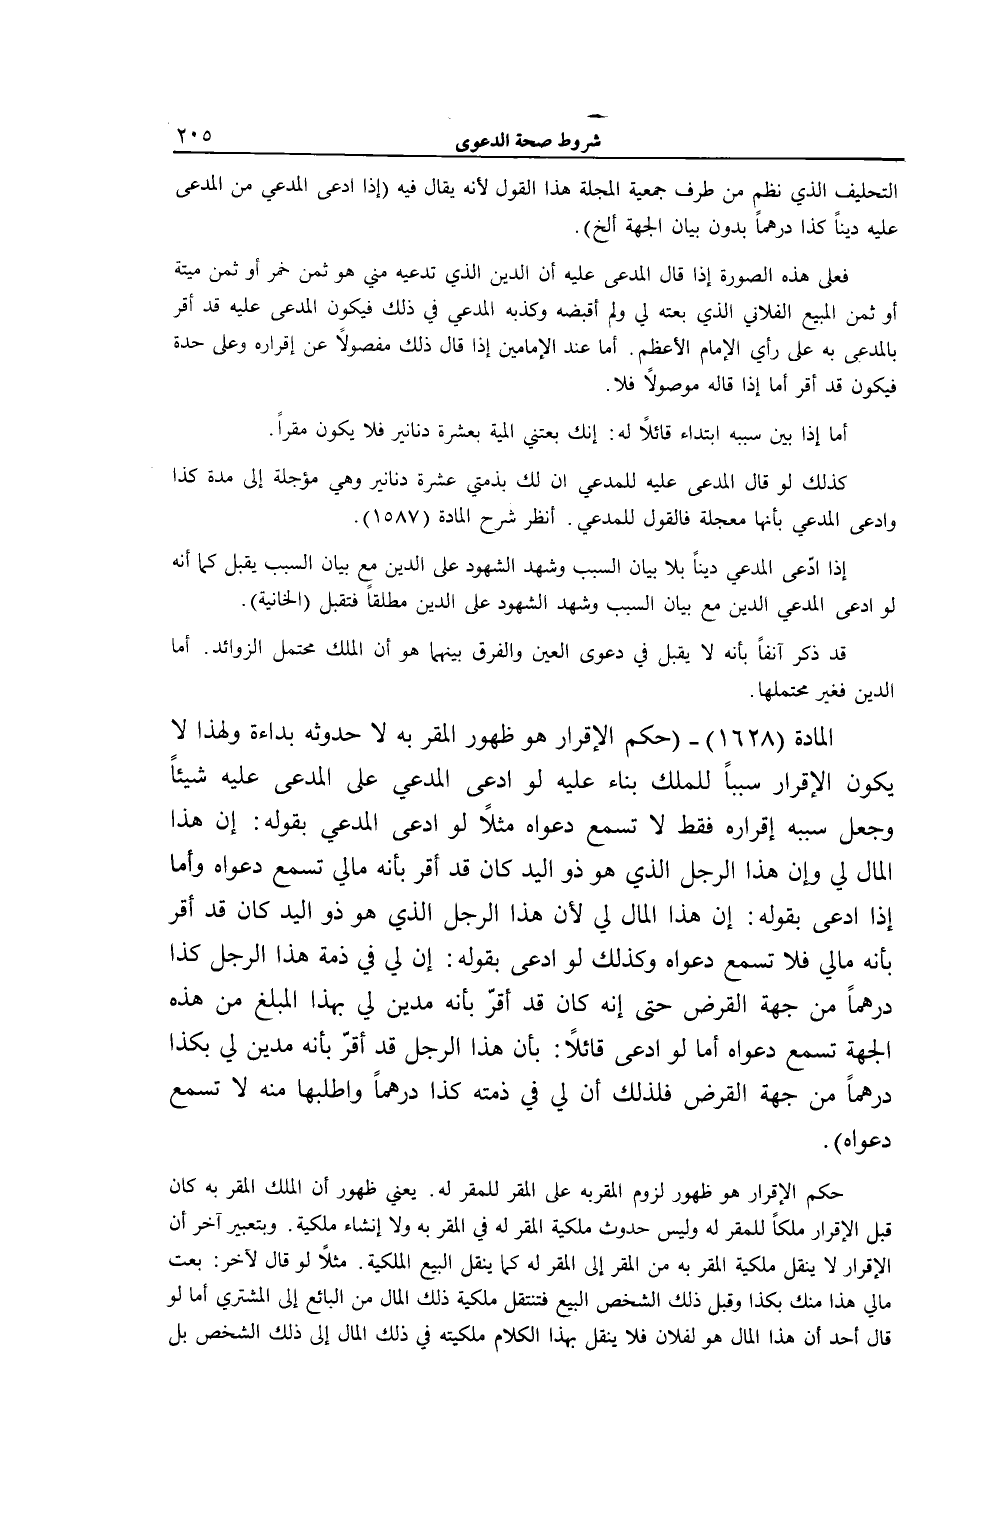 شروط صحة الدعوى ٢٠٥
التحليف الذي نظم من طرف جمعية المجلة هذا القول لأنه يقال فيه (إذا ادعى المدعي من المدعى
عليه ديناً كذا درهماً بدون بيان الجهة ألخ).
فعلى هذه الصورة إذا قال المدعى عليه أن الدين الذي تدعيه مني هو ثمن خمر أو ثمن ميتة
أو ثمن المبيع الفلاني الذي بعته لي ولم أقبضه وكذبه المدعي في ذلك فيكون المدعى عليه قد أقر
بالمدعى به على رأي الإمام الأعظم. أما عند الإمامين إذا قال ذلك مفصولاً عن إقراره وعلى حدة
فيكون قد أقر أما إذا قاله موصولاً فلا.
أما إذا بين سببه ابتداء قائلاً له: إنك بعتني المية بعشرة دنانير فلا يكون مقراً.
كذلك لو قال المدعى عليه للمدعي ان لك بذمتي عشرة دنانير وهي مؤجلة إلى مدة كذا
وادعى المدعي بأنها معجلة فالقول للمدعي. أنظر شرح المادة (١٥٨٧).
إذا ادّعى المدعي ديناً بلا بيان السبب وشهد الشهود على الدين مع بيان السبب يقبل كما أنه
لو ادعى المدعي الدين مع بيان السبب وشهد الشهود على الدين مطلقاً فتقبل (الخانية).
قد ذكر آنفاً بأنه لا يقبل في دعوى العين والفرق بينهما هو أن الملك محتمل الزوائد. أما
الدين فغير محتملها.
المادة (١٦٢٨) ـ (حكم الإقرار هو ظهور المقر به لا حدوثه بداءة ولهذا لا
يكون الإقرار سبباً للملك بناء عليه لو ادعى المدعي على المدعى عليه شيئاً
وجعل سببه إقراره فقط لا تسمع دعواه مثلاً لو ادعى المدعي بقوله: إن هذا
المال لي وإن هذا الرجل الذي هو ذو اليد كان قد أقر بأنه مالي تسمع دعواه وأما
إذا ادعى بقوله: إن هذا المال لي لأن هذا الرجل الذي هو ذو اليد كان قد أقر
بأنه مالي فلا تسمع دعواه وكذلك لو ادعى بقوله: إن لي في ذمة هذا الرجل كذا
درهماً من جهة القرض حتى إنه كان قد أقرّ بأنه مدين لي بهذا المبلغ من هذه
الجهة تسمع دعواه أما لو ادعى قائلاً: بأن هذا الرجل قد أقرّ بأنه مدين لي بكذا
درهماً من جهة القرض فلذلك أن لي في ذمته كذا درهماً واطلبها منه لا تسمع
دعواه).
حكم الإقرار هو ظهور لزوم المقربه على المقر للمقر له. يعني ظهور أن الملك المقر به كان
قبل الإقرار ملكاً للمقر له وليس حدوث ملكية المقر له في المقر به ولا إنشاء ملكية. وبتعبير آخر أن
الإقرار لا ينقل ملكية المقر به من المقر إلى المقر له كما ينقل البيع الملكية. مثلاً لو قال لآخر: بعت
مالي هذا منك بكذا وقبل ذلك الشخص البيع فتنتقل ملكية ذلك المال من البائع إلى المشتري أما لو
قال أحد أن هذا المال هو لفلان فلا ينقل بهذا الكلام ملكيته في ذلك المال إلى ذلك الشخص بل